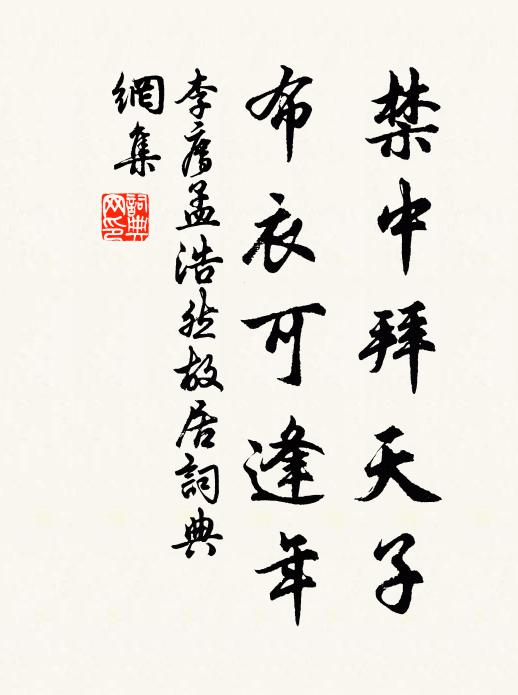 禁中拜天子
布衣可逢年
李廌孟浩然故居詞典
網集
詞典
网印